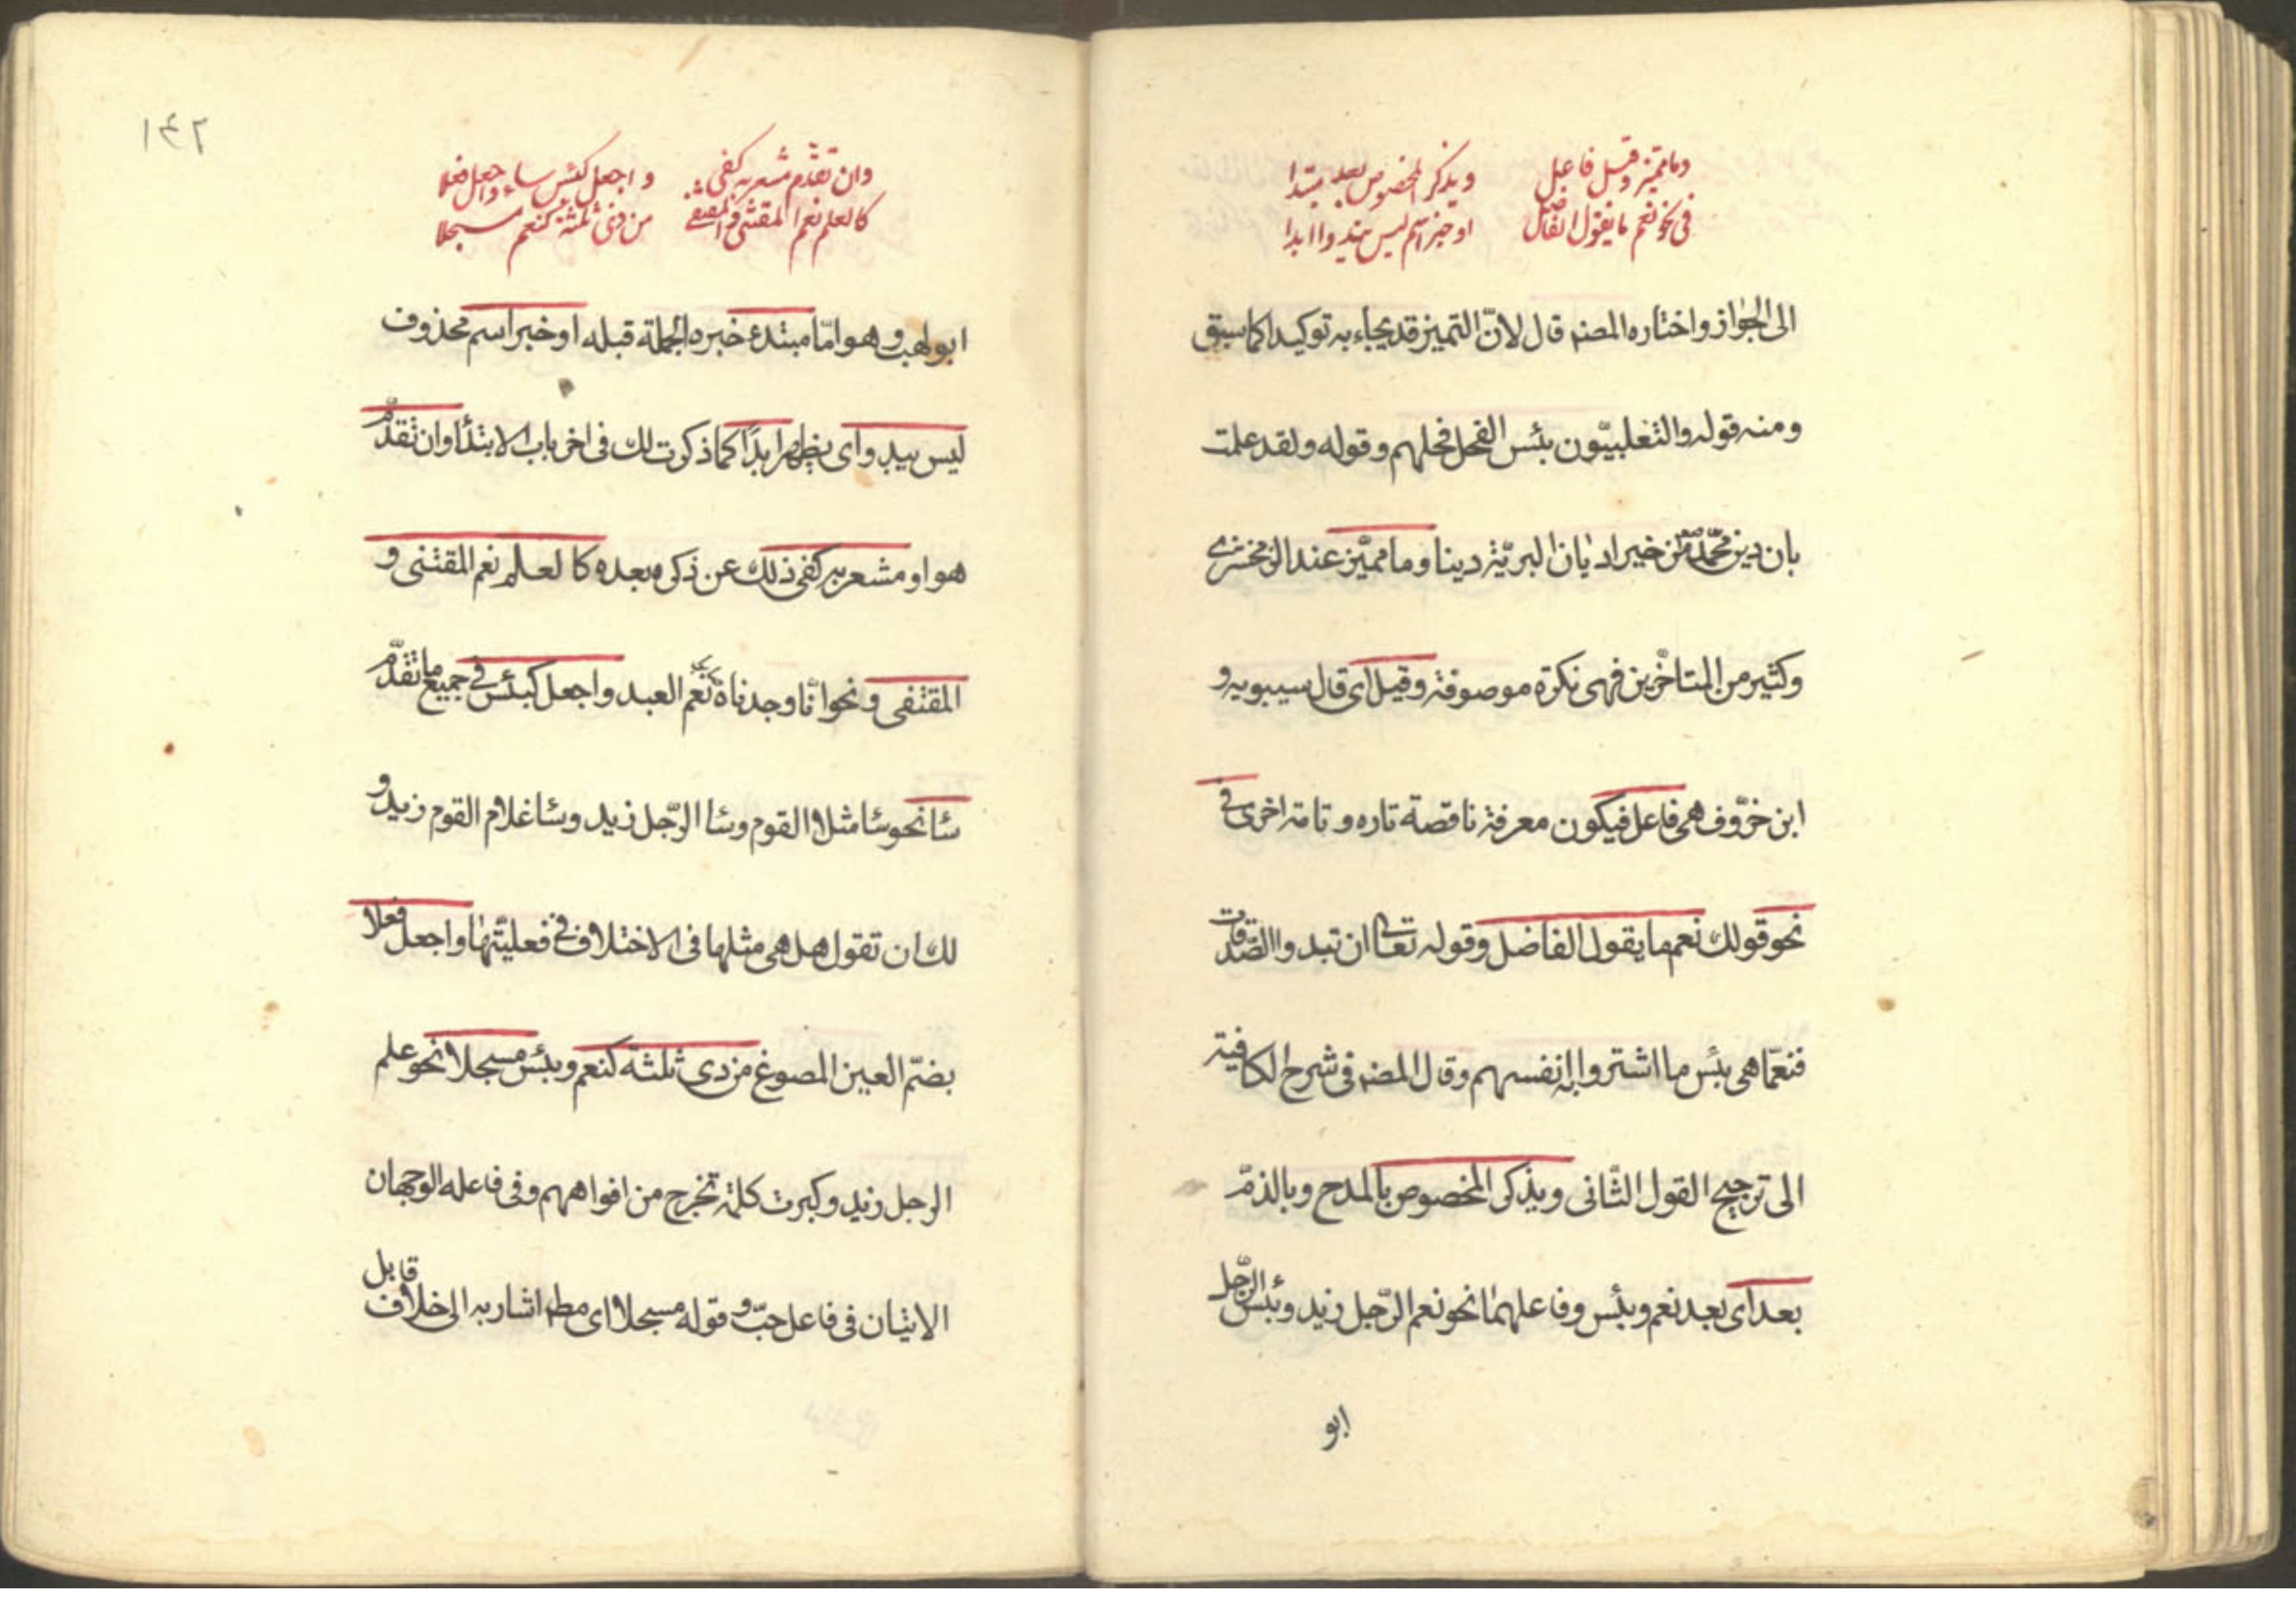 وما مميز وقيل فاعل ويذكر المخصوص بعد مبتدا
فى نحو نعم ما يقول الفاضل او خبر اسم ليس يبدوا ابدا
الى الجواز واختاره المصنه قال لانّ التميز قد يجاء به توكيدا كما سبق
ومنه قوله والتغلبيّون بئس الفحل فحلهم وقوله ولقد علمت
بان دين محمّد من خير اديان البريّة دينا وما مميّز عند الزمخشرى
وكثير من المتاخّرين فهى نكرة موصوفة وقيل اى قال سيبويه و
ابن خرّوف هى فاعل فيكون معرفة ناقصة تاره وتامة اخرى فى
نحو قولك نعم ما يقول الفاضل وقوله تعالى ان تبدوا الصّدقات
فنعمّا هى بئس ما اشتروا به انفسهم وقال المصنه فى شرح الكافية
الى ترجيح القول الثّانى ويذكر المخصوص بالمدح وبالذمّ
بعد اى بعد نعم وبئس وفاعلهما نحو نعم الرّجل زيد وبئس الرّجل
ابو
١٤٢
وان تقدّم مشعر به كفى واجعل كبئس ساء واجعل فعلا
كالعلم نعم المقتنى والمقتفى من ذى ثلثة كنعم مسجلا
ابو لهب وهو امّا مبتدء خبره الجملة قبله او خبر اسم محذوف
ليس يبد واى يظهر ابدًا كما ذكرت لك فى اخر باب الابتدأ وان تقدّم
هو او مشعر به كفى ذلك عن ذكره بعده كا لعلم نعم المقتنى و
المقتفى ونحو انّا وجدناه نعم العبد واجعل كبئس فى جميع ما تقدّم
سٔا نحو سٔا مثلا القوم وسٔا الرّجل زيد وسٔا غلام القوم زيد و
لك ان تقول هل هى مثلها فى الاختلاف فى فعليّتها واجعل فعلا
بضمّ العين المصوغ من ذى ثلثة كنعم وبئس مسجلا نحو علم
الرجل زيد وكبرت كلمة تخرج من افواههم وفى فاعله الوجهان
الاتيان فى فاعل حبّ و قوله مسجلا اى مطه اشار به الى خلاف قابل